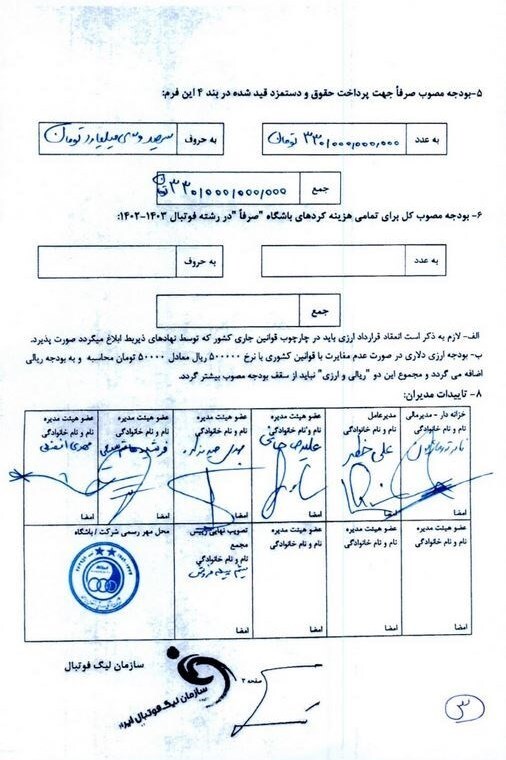 ۵-بودجه مصوب صرفاً جهت پرداخت حقوق و دستمزد قید شده در بند ۴ این فرم:
به عدد ۳۳۰,۰۰۰,۰۰۰,۰۰۰ تومان به حروف سیصد و سی میلیارد تومان
جمع ۳۳۰,۰۰۰,۰۰۰,۰۰۰
۶- بودجه مصوب کل برای تمامی هزینه کردهای باشگاه "صرفاً "در رشته فوتبال ۱۴۰۳-۱۴۰۲:
به عدد به حروف
جمع
الف- لازم به ذکر است انعقاد قرارداد ارزی باید در چارچوب قوانین جاری کشور که توسط نهادهای ذیربط ابلاغ میگردد صورت پذیرد.
ب- بودجه ارزی دلاری در صورت عدم مغایرت با قوانین کشوری با نرخ ۵۰۰۰۰۰ ریال معادل ۵۰۰۰۰ تومان محاسبه و به بودجه ریالی
اضافه می گردد و مجموع این دو "ریالی و ارزی" نباید از سقف بودجه مصوب بیشتر گردد.
۸- تاییدات مدیران:
خزانه دار - مدیرمالی مدیرعامل عضو هیئت مدیره عضو هیئت مدیره عضو هیئت مدیره عضو هیئت مدیره
نام و نام خانوادگی نام و نام خانوادگی نام و نام خانوادگی نام و نام خانوادگی نام و نام خانوادگی نام و نام خانوادگی
علی خطیر
امضا امضا امضا امضا امضا امضا
عضو هیئت مدیره عضو هیئت مدیره عضو هیئت مدیره تصویب نهایی رئیس محل مهر رسمی شرکت / باشگاه
نام و نام خانوادگی نام و نام خانوادگی نام و نام خانوادگی مجمع
نام و نام خانوادگی
امضا امضا امضا امضا
سازمان لیگ فوتبال
صفحه ۳
سازمان لیگ فوتبال ایران
۳